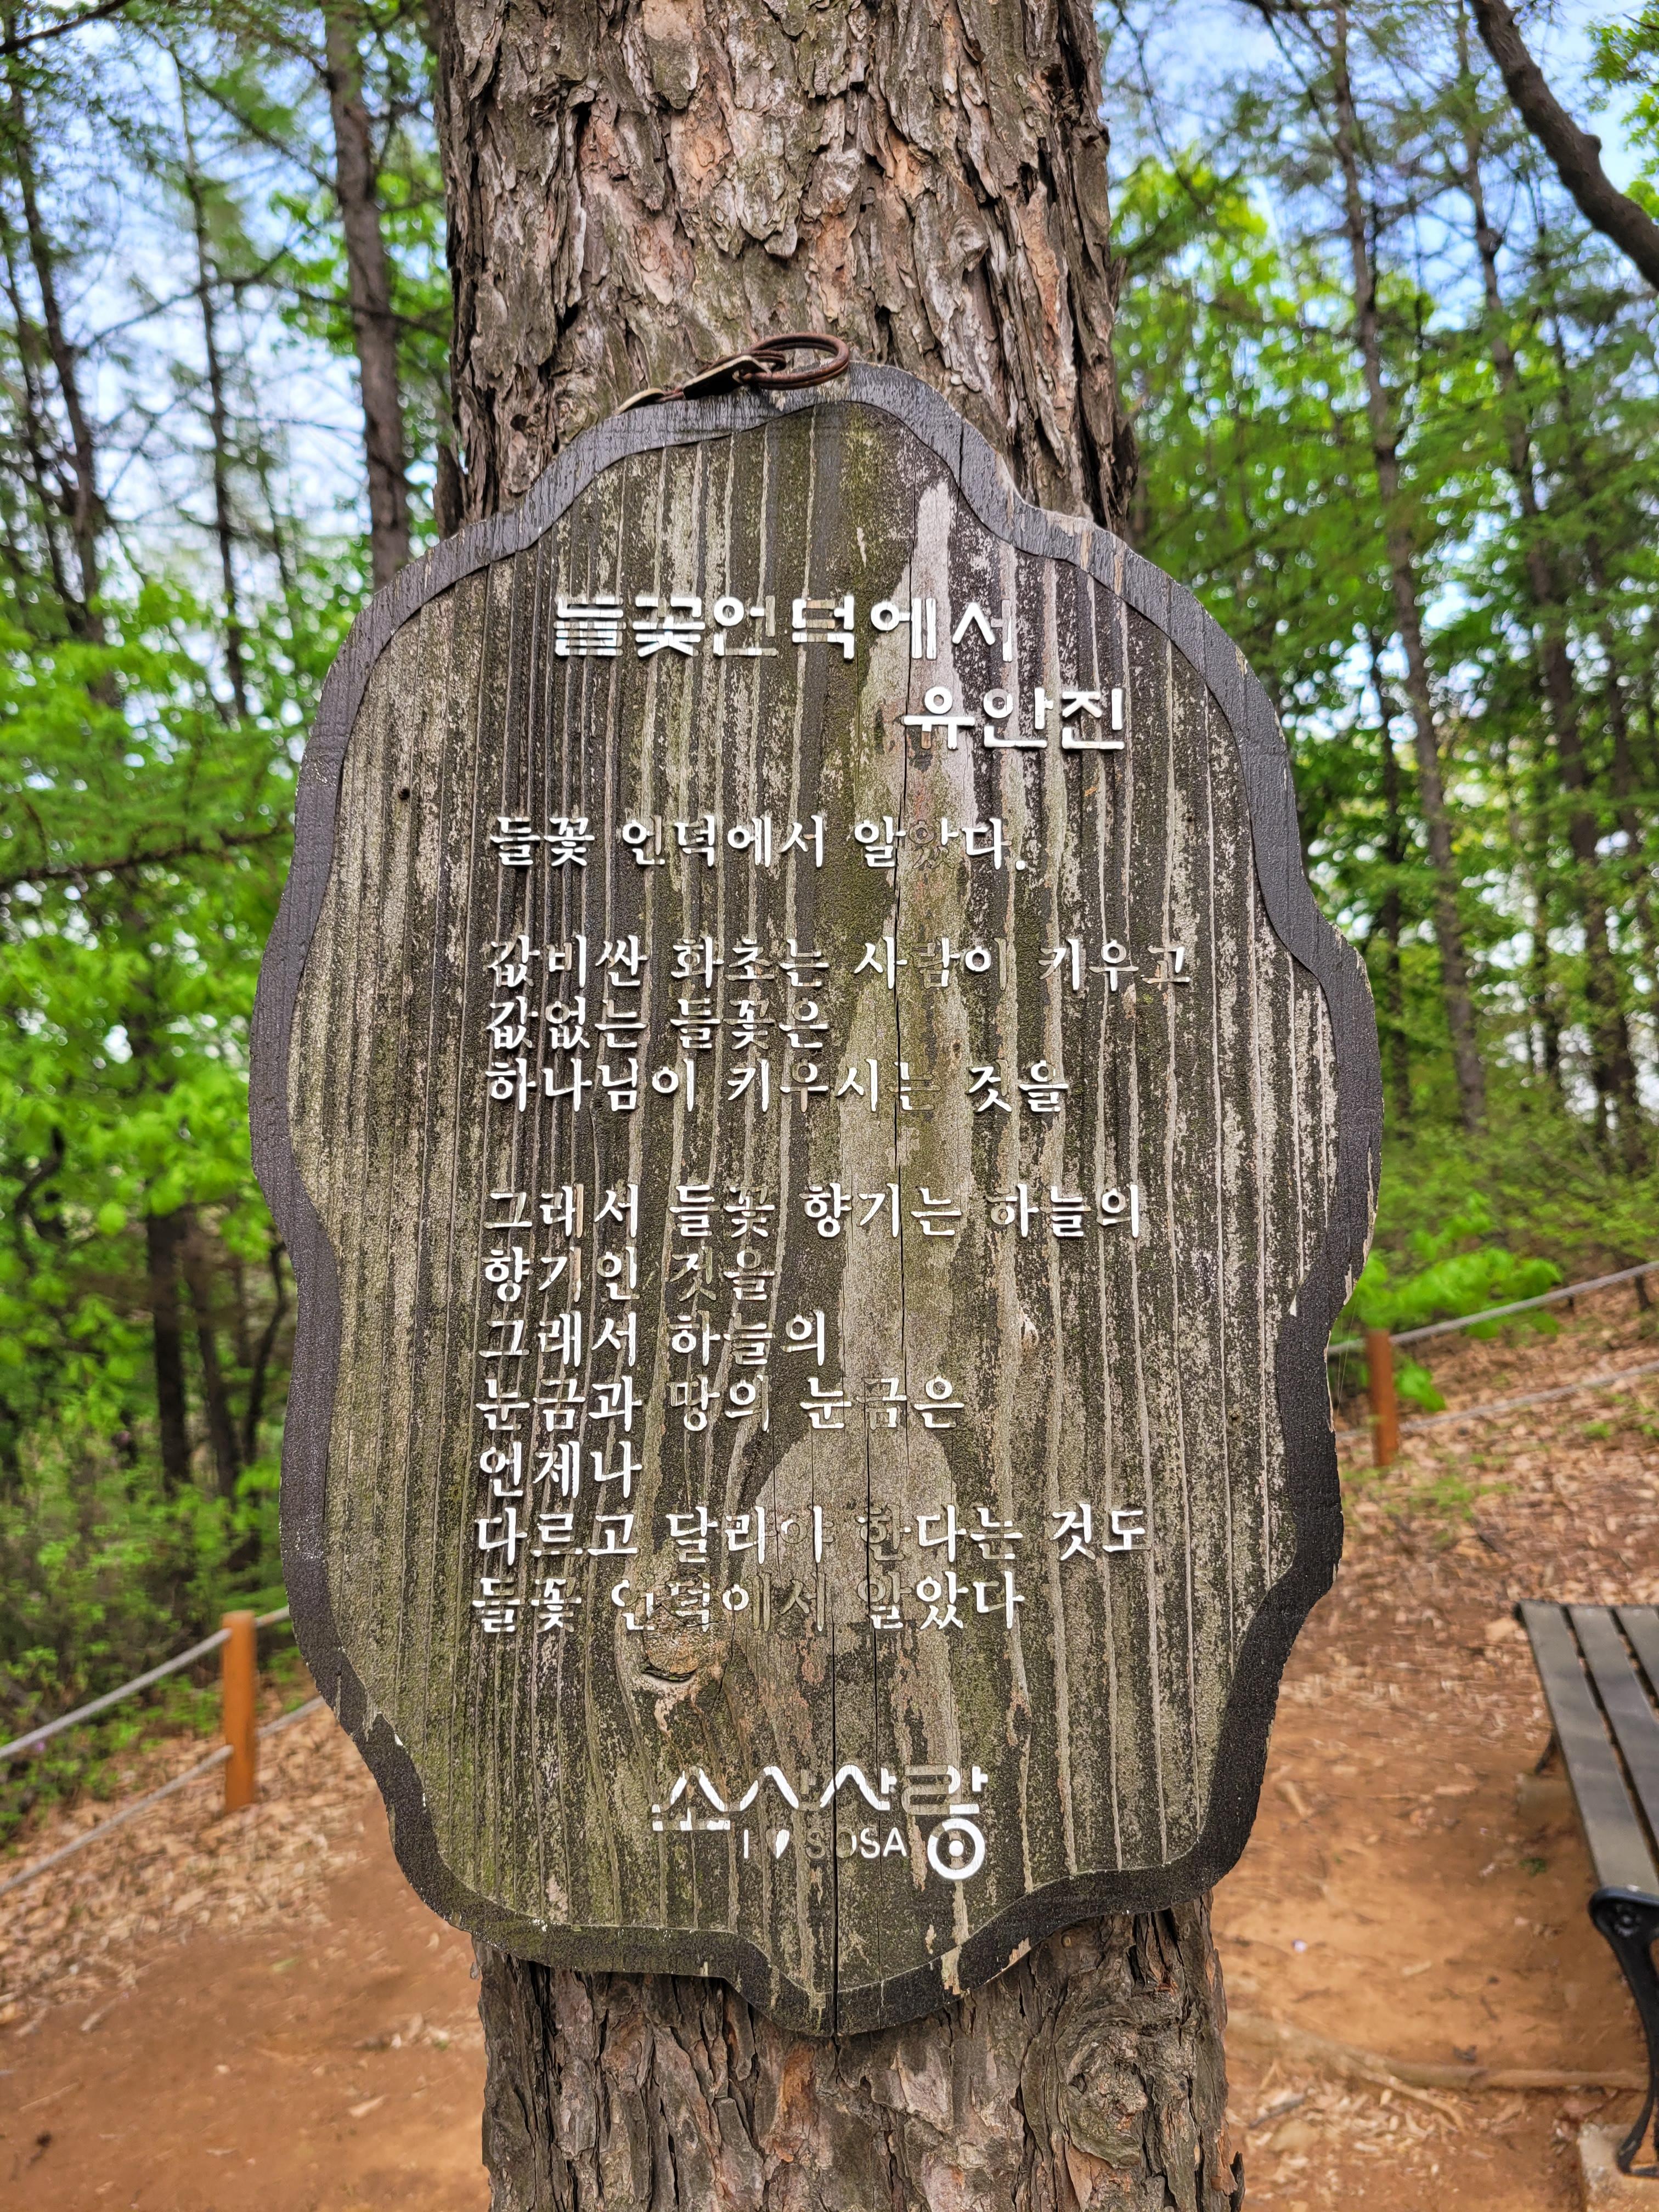 들꽃언덕에서
유안진
들꽃 언덕에서 알았다.
값비싼 화초는 사람이 키우고
값없는 들꽃은
하나님이 키우시는 것을
그래서 들꽃 향기는 하늘의
향기인 것을
그래서 하늘의
눈금과 땅의 눈금은
언제나
다르고 달라야 한다는 것도
들꽃 언덕에서 알았다
소사사랑
I ♥ SOSA